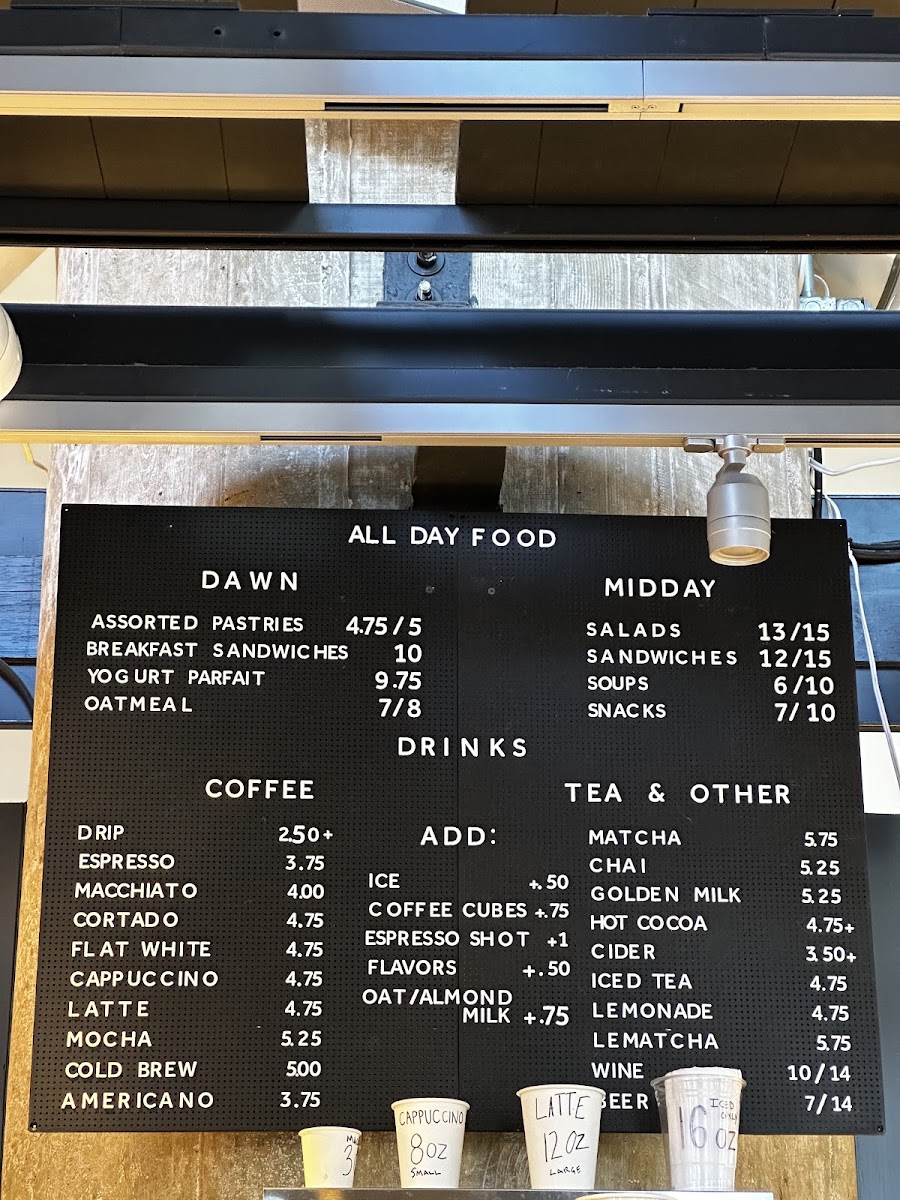 ALL DAY FOOD
DAWN
ASSORTED PASTRIES 4.75/5
BREAKFAST SANDWICHES 10
YOGURT PARFAIT 9.75
OATMEAL 7/8
MIDDAY
SALADS 13/15
SANDWICHES 12/15
SOUPS 6/10
SNACKS 7/10
DRINKS
COFFEE
DRIP 2.50+
ESPRESSO 3.75
MACCHIATO 4.00
CORTADO 4.75
FLAT WHITE 4.75
CAPPUCCINO 4.75
LATTE 4.75
MOCHA 5.25
COLD BREW 5.00
AMERICANO 3.75
ADD:
ICE +.50
COFFEE CUBES +.75
ESPRESSO SHOT +1
FLAVORS +.50
OAT/ALMOND
MILK +.75
TEA & OTHER
MATCHA 5.75
CHAI 5.25
GOLDEN MILK 5.25
HOT COCOA 4.75+
CIDER 3.50+
ICED TEA 4.75
LEMONADE 4.75
LEMATCHA 5.75
WINE 10/14
BEER 7/14
3
CAPPUCCINO
8OZ
SMALL
LATTE
12OZ
LARGE
ICED
16 OZ